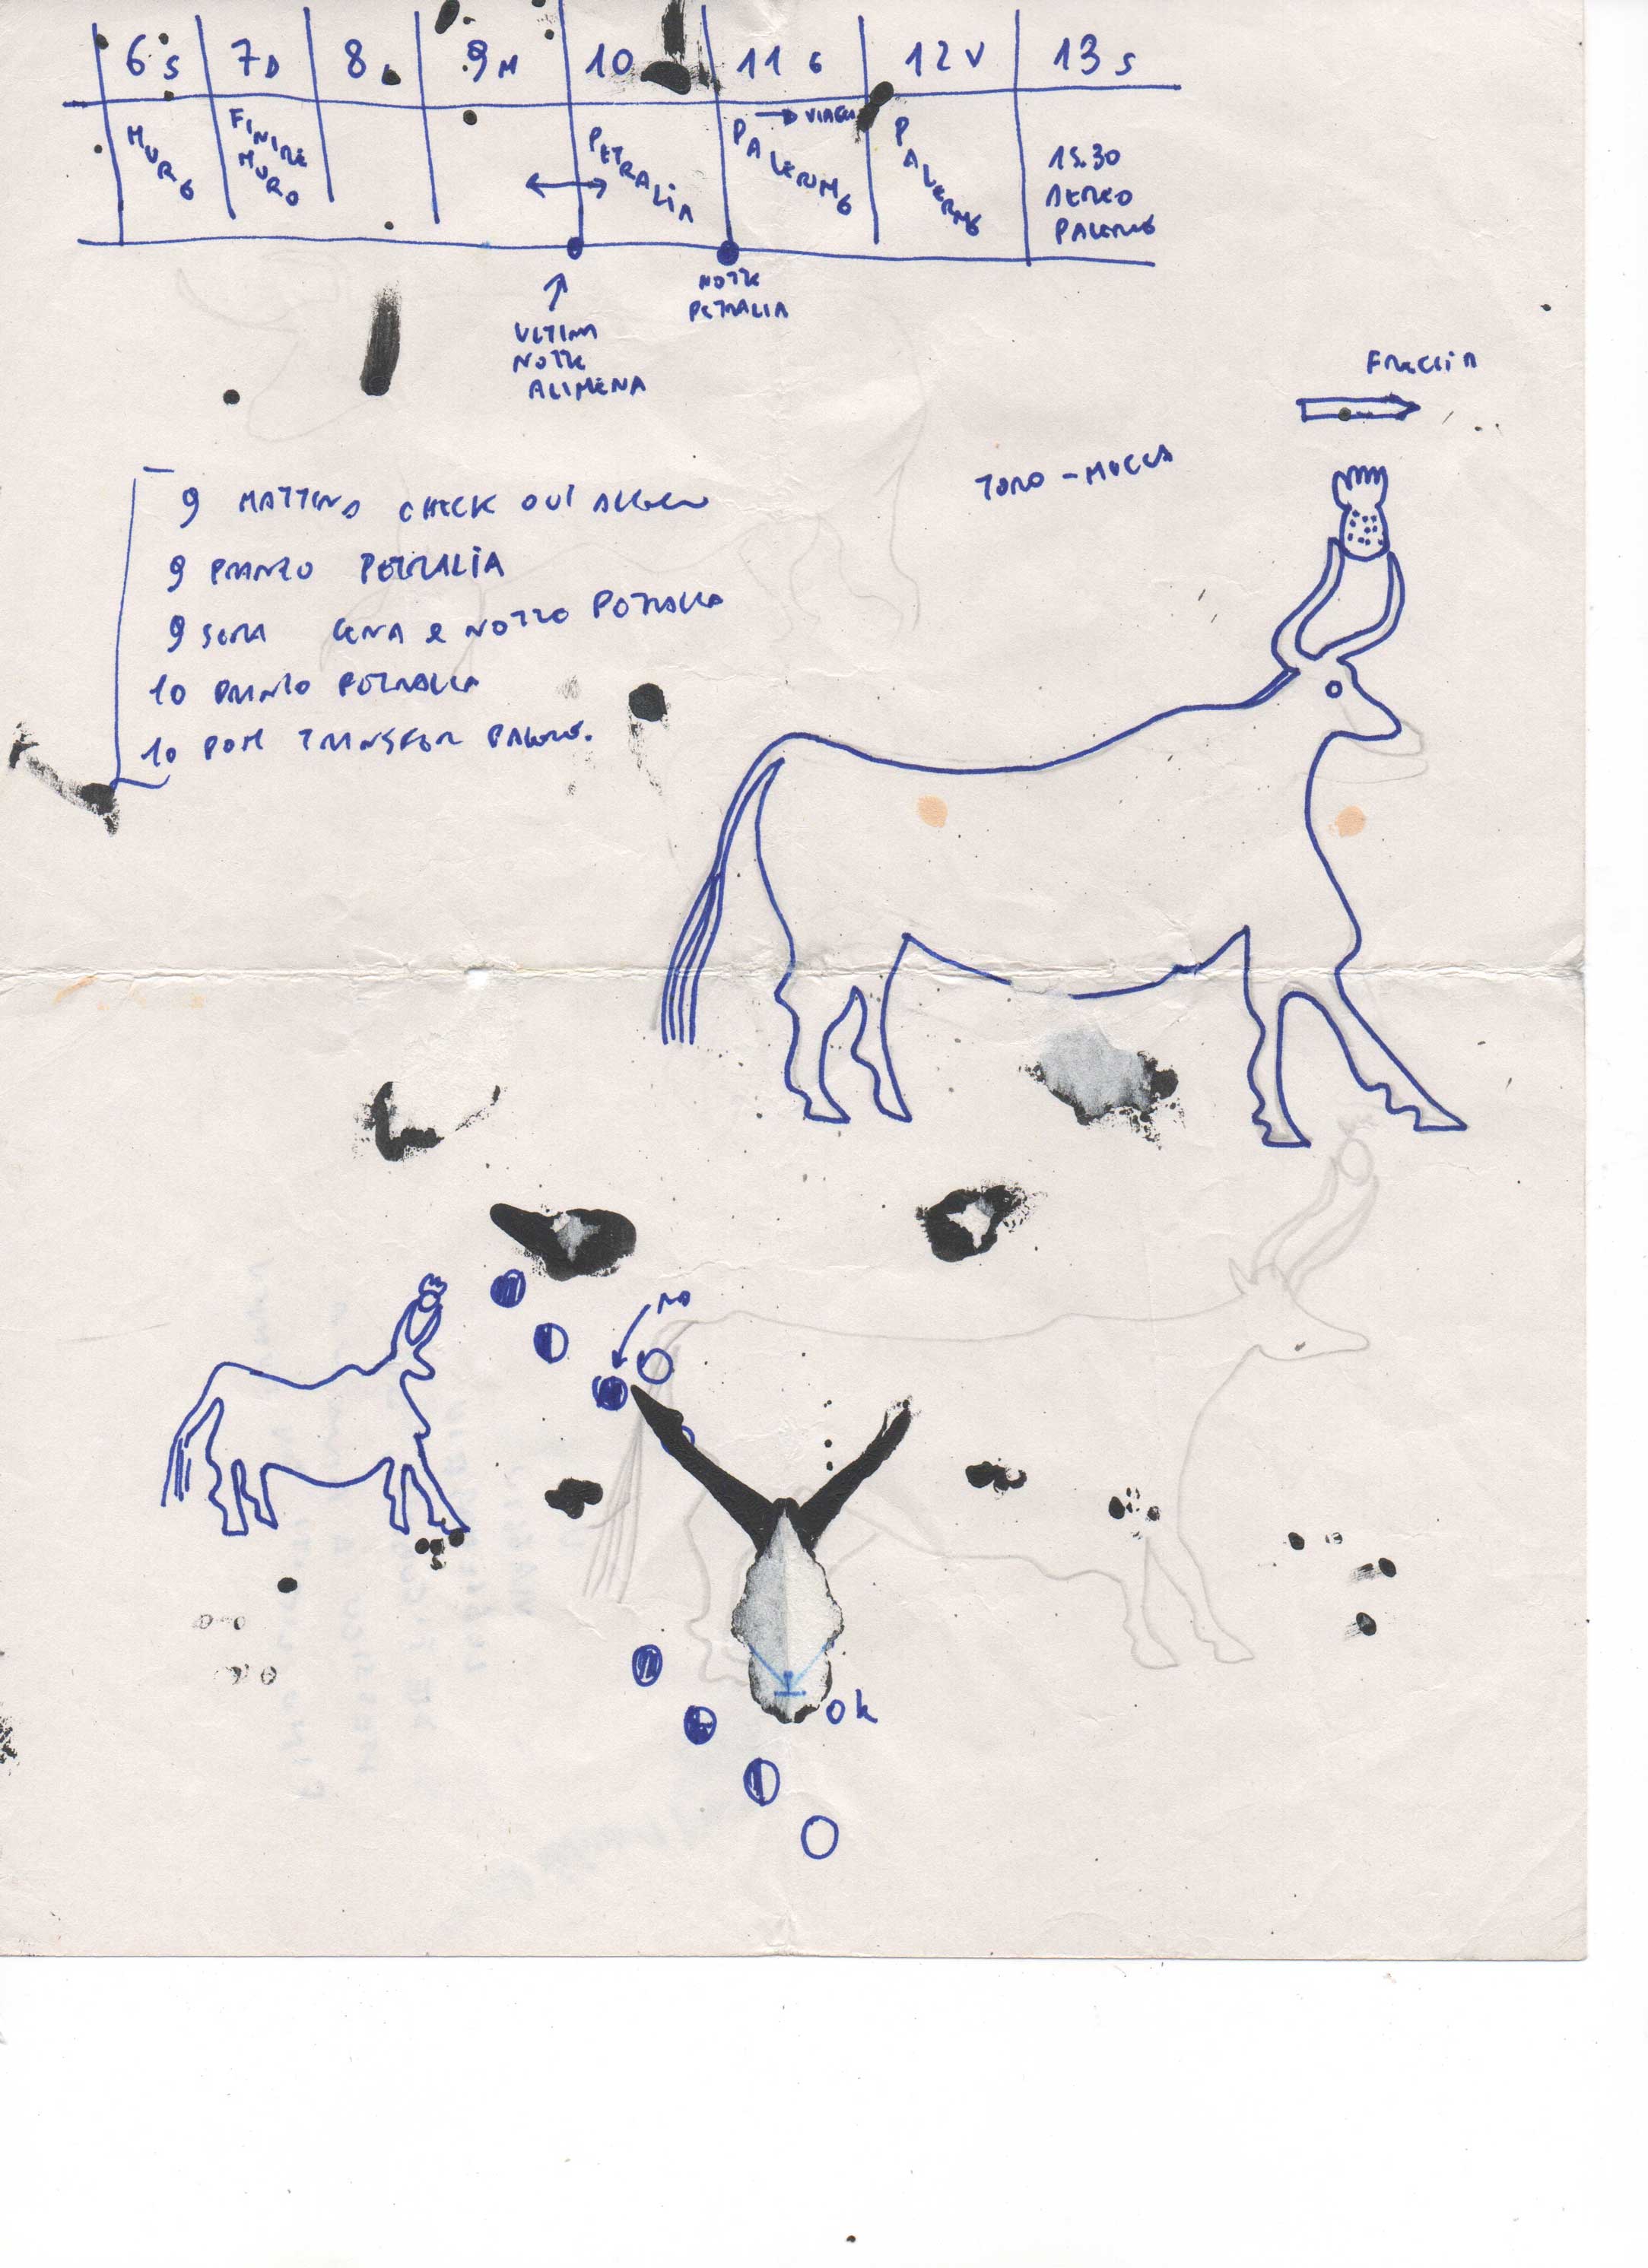 6 S 7 D 8 L 9 M 10 11 G 12 V 13 S
MURO
FINIRE
MURO
PETRALIA
→ VIAGGIO
PALERMO
PALERMO
15.30
AEREO
PALERMO
↑
ULTIMA
NOTTE
ALIMENA
NOTTE
PETRALIA
FRECCIA
TORO - MUCCA
9 MATTINO CHECK OUT
9 PRANZO PETRALIA
9 SERA CENA E NOTTE PETRALIA
10 PRANZO PETRALIA
10 POM TRANSFER PALERMO.
NO
OK